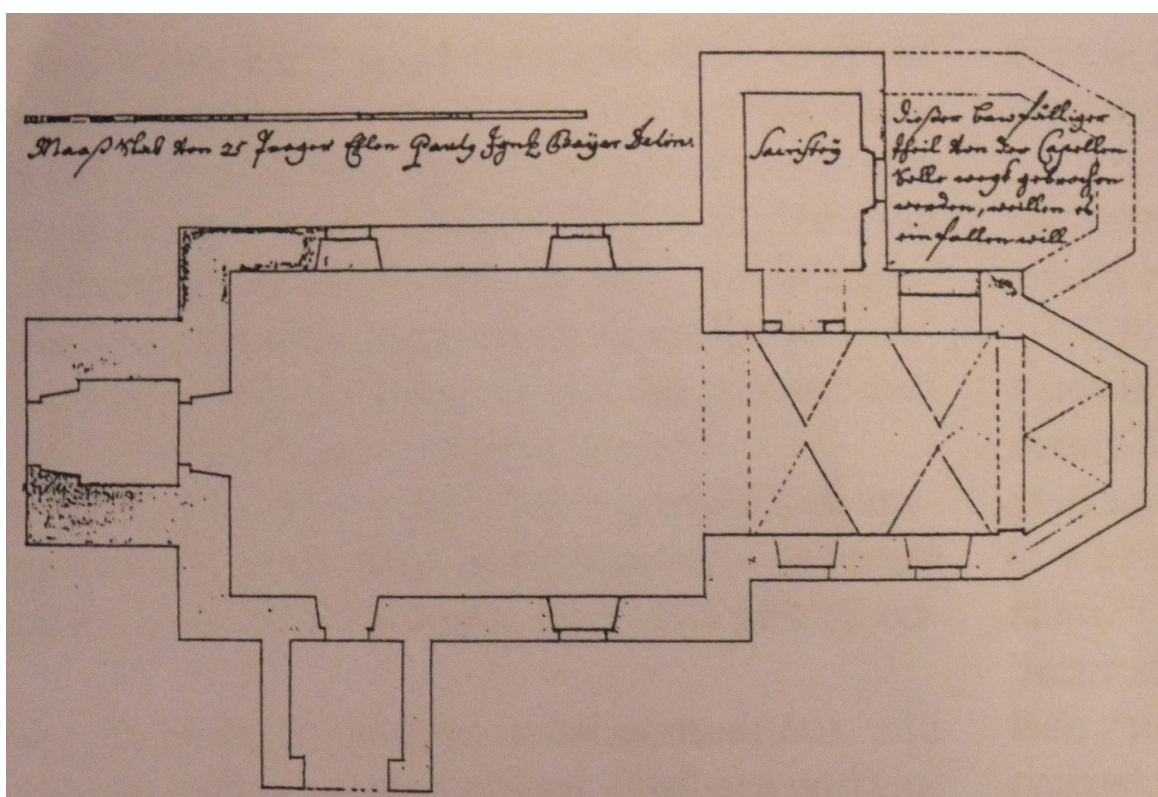 Maaß Stab von 25 Prager Ehlen Paulg Ignk Bayer Delin.
Sacristey
dießer bawfälliger
theil von der Capellen
solle wegk gebrochen
werden, weillen es
ein fallen will